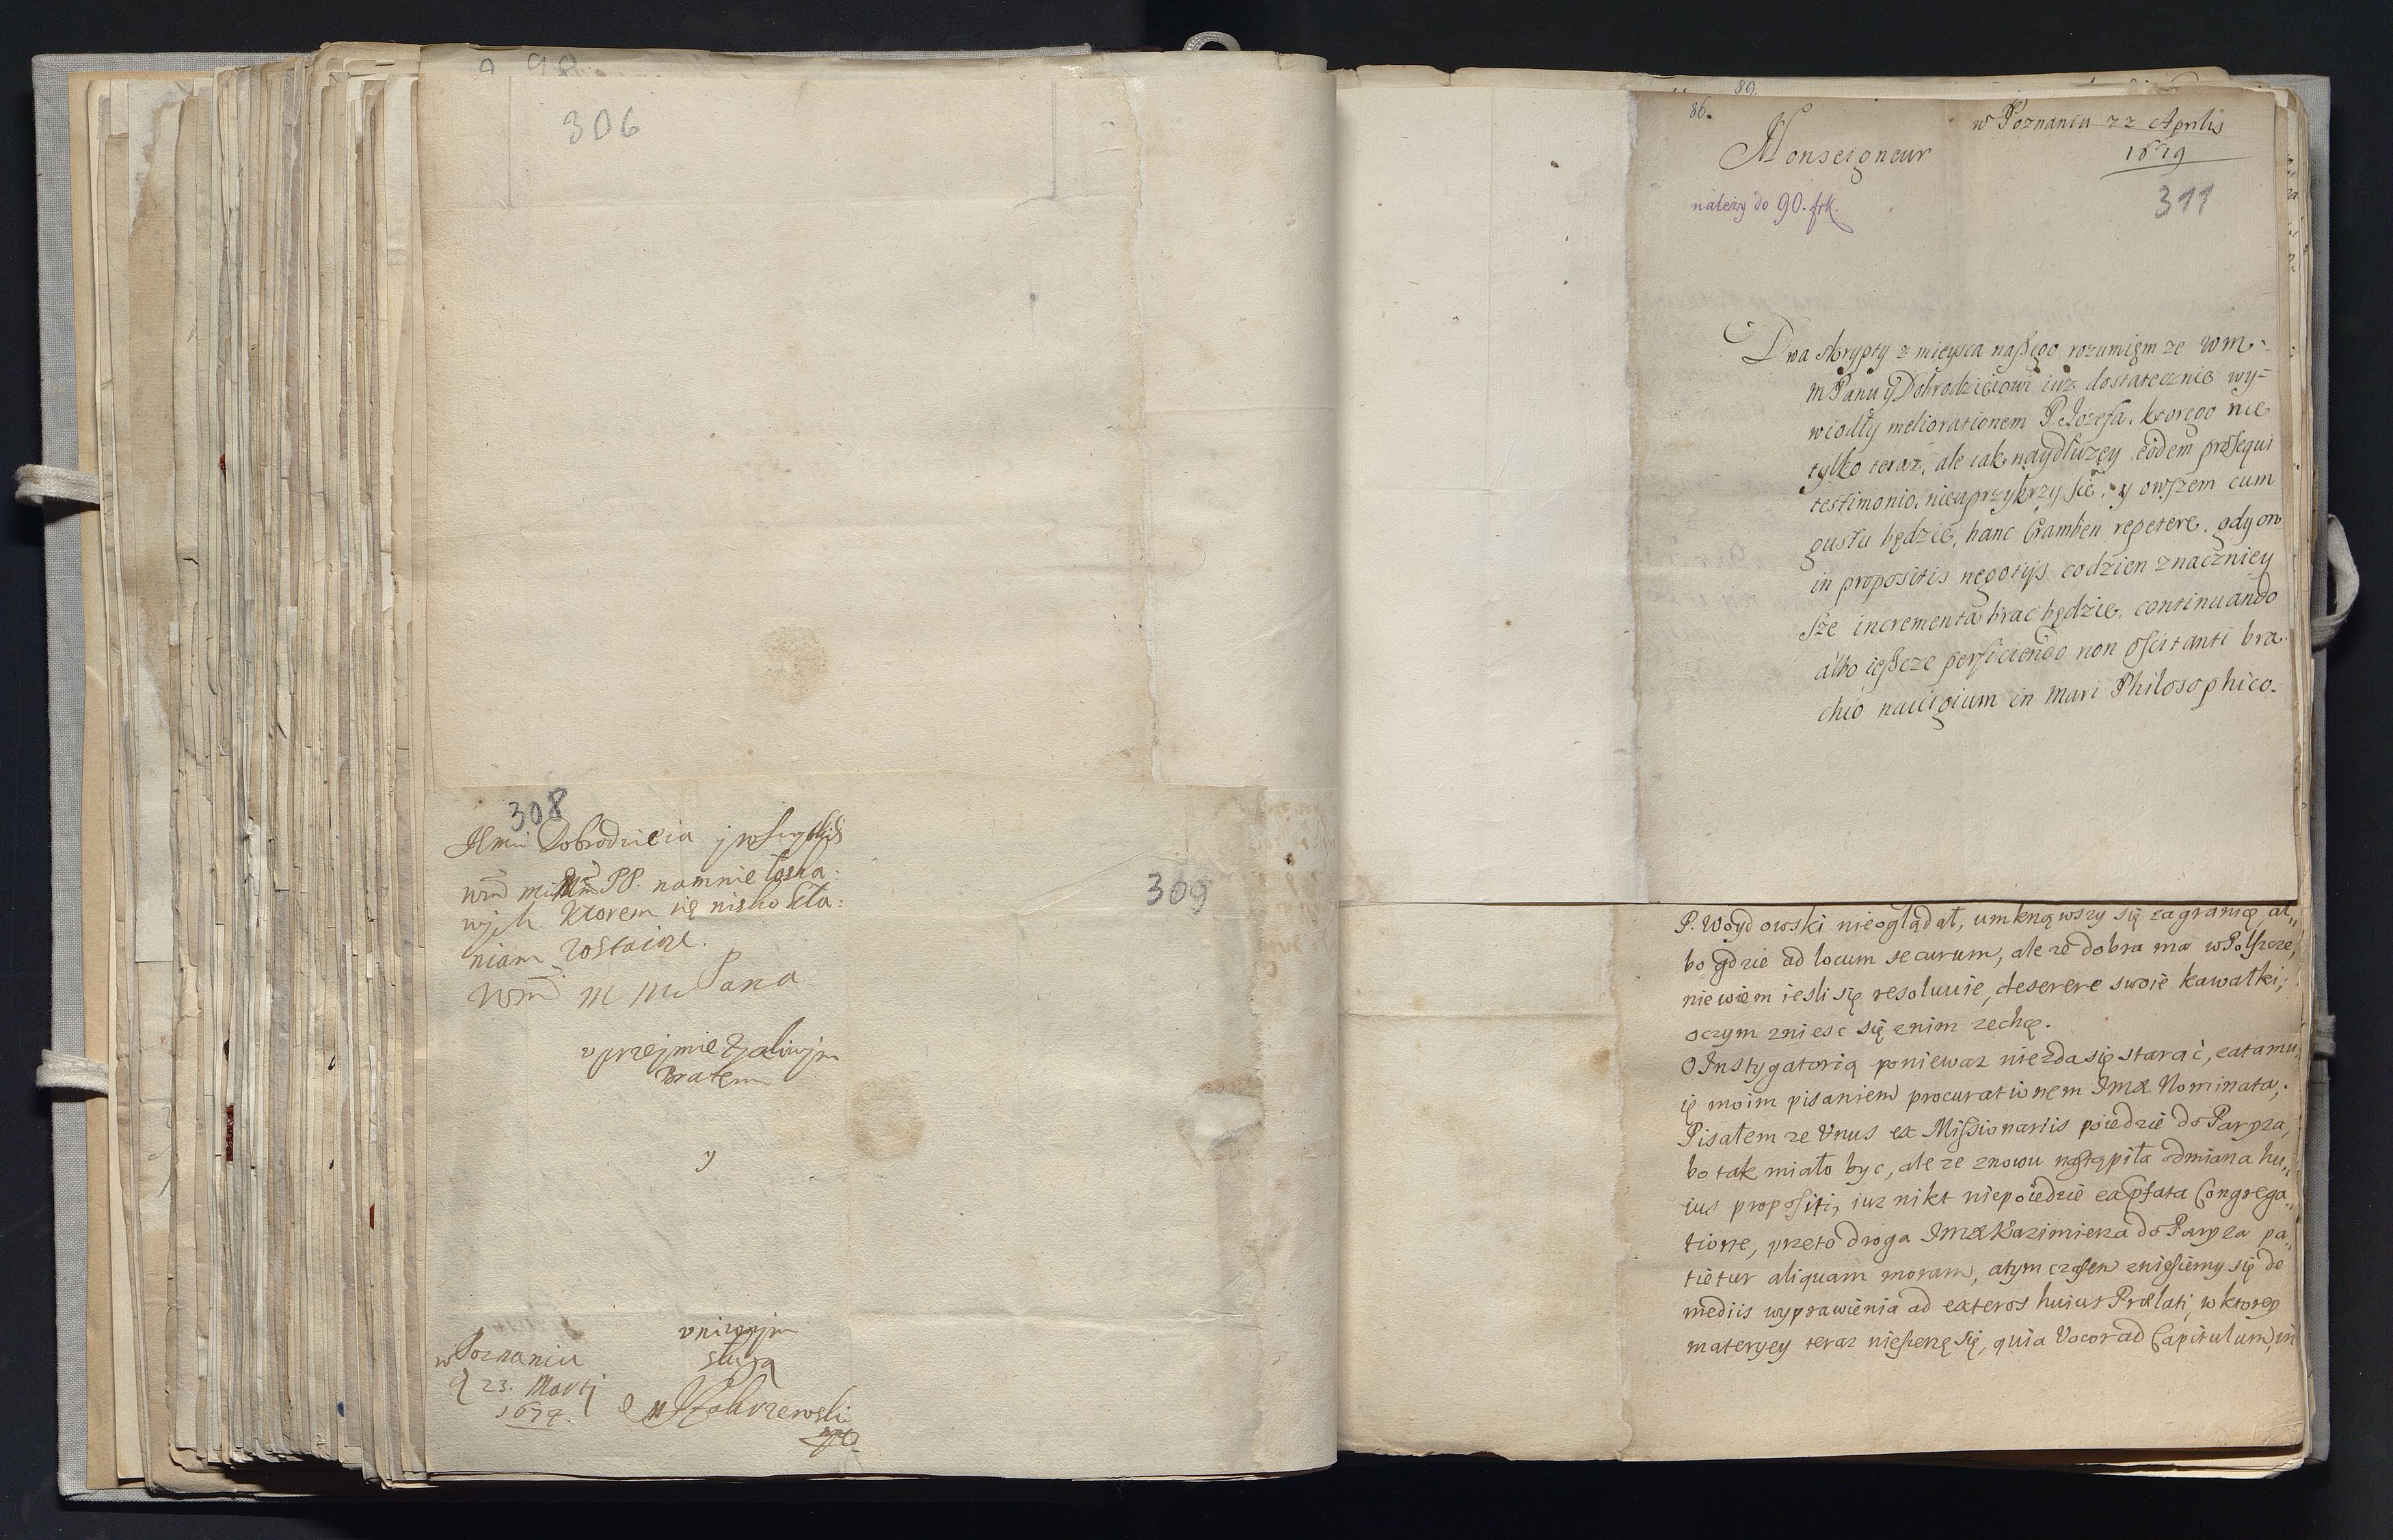 306
308
Jlmci Dobrodzieia j wszystkich
wm m PP. namnie łaska:
wjch ktorem się nisko kła:
niam zostaię.
Wm m m Pana
uprzejmie zycliwjm
Bratem
y
unizonjm
sługą
w Poznaniu
d 23. Martj
1679.
309
89.
86.
w Poznaniu 22 Aprilis
1679
Monseigneur
311
należy do 90. frk.
Dwa skrypty z mieysca naszego rozumięm ze wm.
m Panu y Dobrodzieiowi iuz dostatecznie wy=
wiodły meliorationem P Jozefa. ktorego nie
tylko teraz, ale iak naydłuzey eodem prosequi
testimonio, nieuprzykrzy sie, y owszem cum
gustu będzie, hanc Cramben repetere. gdy on
in propositis negotijs codzien znaczniey
sze incrementa brac będzie, continuando
albo ieszcze perficiendo non oscitanti bra
chio nauigium in mari Philosophico.
P. Woydowski nieoglądał, umknąwszy się zagranię, al„
bo gdzie ad locum securum, ale ze dobra ma w Polszcze,
niewiem iesli się resoluuie, deserere swoie kawałki;
oczym zniesc się znim zechcę.
O Instygatorią poniewaz niezda się starać, zatamu„
ię moim pisaniem procurationem Jmæ Nominata,
Pisałem ze Unus ex Missionariis poiedzie do Paryza,
bo tak miało byc, ale ze znowu nastąpiła odmiana hu„
ius propositi, iuz nikt niepoiedzie ea pfata Congrega„
tione, przeto droga Jmæ Kazimierza do Paryza pa„
tietur aliquam moram, atym czasem zniesiemy się de
mediis wyprawienia ad exteros huius Prælati, w ktorey
materyey teraz nieszerzę się, quia Vocor ad Capitulum, in